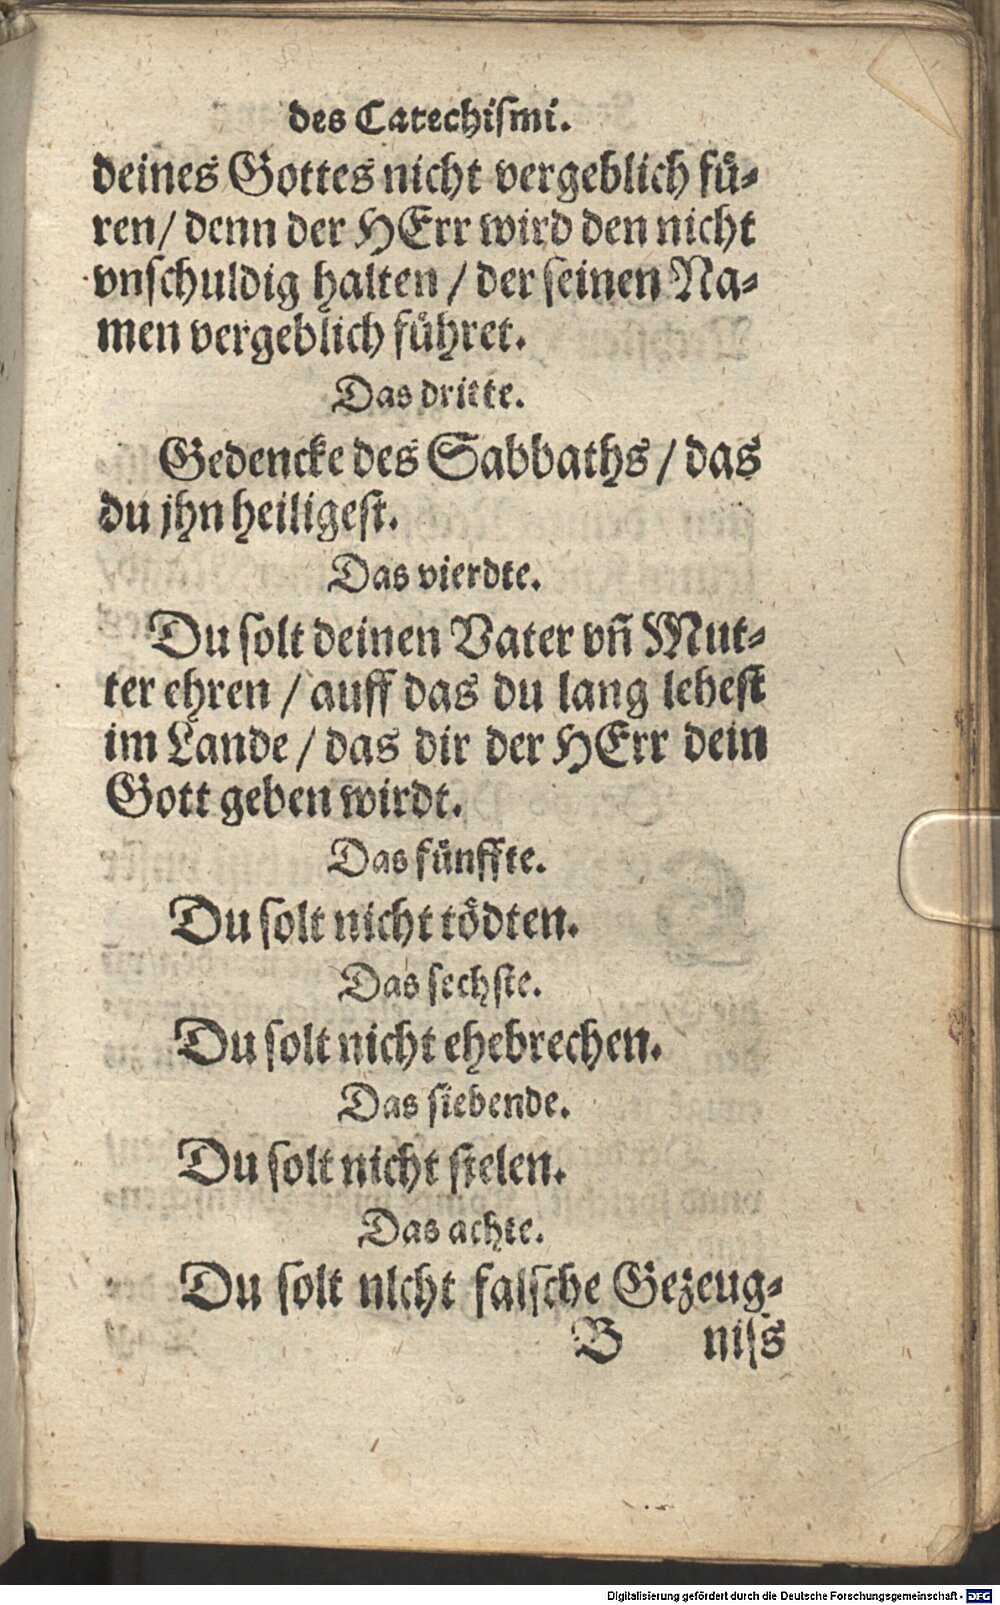 des Catechiſmi.
deines Gottes nicht vergeblich fuͤ⸗
ren/ denn der HErr wird den nicht
vnſchuldig halten / der ſeinen Na⸗
men vergeblich fuͤhret.
Das dritte.
Gedencke des Sabbaths / das
du jhn heiligeſt.
Das vierdte.
Du ſolt deinen Vater vn̄ Mut⸗
ter ehren / auff das du lang lebeſt
im Lande / das dir der HErr dein
Gott geben wirdt.
Das fuͤnffte.
Du ſolt nicht toͤdten.
Das ſechſte.
Du ſolt nicht ehebrechen.
Das ſiebende.
Du ſolt nicht ſtelen.
Das achte.
Du ſolt nicht falſche Gezeug⸗
B niſs
Digitalisierung gefördert durch die Deutsche Forschungsgemeinschaft - DFG